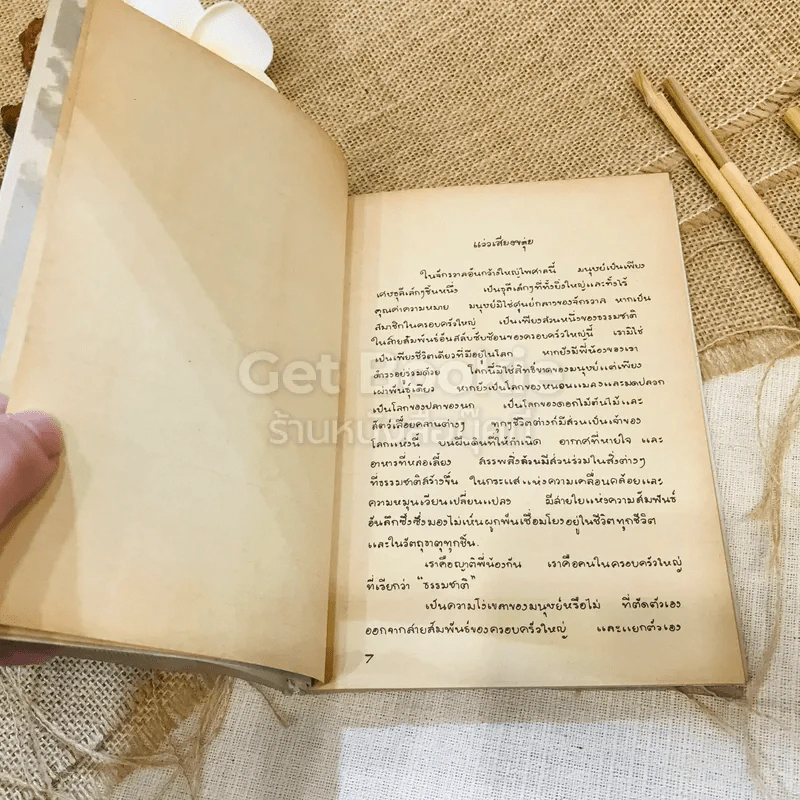 แว่วเสียงขลุ่ย
ในจักรวาลอันกว้างใหญ่ไพศาลนี้ มนุษย์เป็นเพียง
เศษธุลีเล็กๆชิ้นหนึ่ง เป็นธุลีเล็กๆที่ทั้งยิ่งใหญ่และทั้งไร้
คุณค่าความหมาย มนุษย์มิใช่ศูนย์กลางของจักรวาล หากเป็น
สมาชิกในครอบครัวใหญ่ เป็นเพียงส่วนหนึ่งของธรรมชาติ
ในสายสัมพันธ์อันสลับซับซ้อนของครอบครัวใหญ่นี้ เรามิใช่
เป็นเพียงชีวิตเดียวที่มีอยู่ในโลก หากยังมีพี่น้องของเรา
ดำรงอยู่ร่วมด้วย โลกนี้มิใช่สิทธิขาดของมนุษย์แต่เพียง
เผ่าพันธุ์เดียว หากยังเป็นโลกของหนอนแมลงและมดปลวก
เป็นโลกของปลาของนก เป็นโลกของดอกไม้ต้นไม้และ
สัตว์เลื้อยคลานต่างๆ ทุกๆชีวิตต่างก็มีส่วนเป็นเจ้าของ
โลกแห่งนี้ บนผืนดินที่ให้กำเนิด อากาศที่หายใจ และ
อาหารที่หล่อเลี้ยง สรรพสิ่งล้วนมีส่วนร่วมในสิ่งต่างๆ
ที่ธรรมชาติสร้างขึ้น ในกระแสแห่งความเคลื่อนคล้อยและ
ความหมุนเวียนเปลี่ยนแปลง มีสายใยแห่งความสัมพันธ์
อันลึกซึ้งซึ่งมองไม่เห็นผูกพันเชื่อมโยงอยู่ในชีวิตทุกชีวิต
และในวัตถุธาตุทุกชิ้น.
เราคือญาติพี่น้องกัน เราคือคนในครอบครัวใหญ่
ที่เรียกว่า "ธรรมชาติ"
เป็นความโง่เขลาของมนุษย์หรือไม่ ที่ตัดตัวเอง
ออกจากสายสัมพันธ์ของครอบครัวใหญ่ และแยกตัวเอง
7
Get